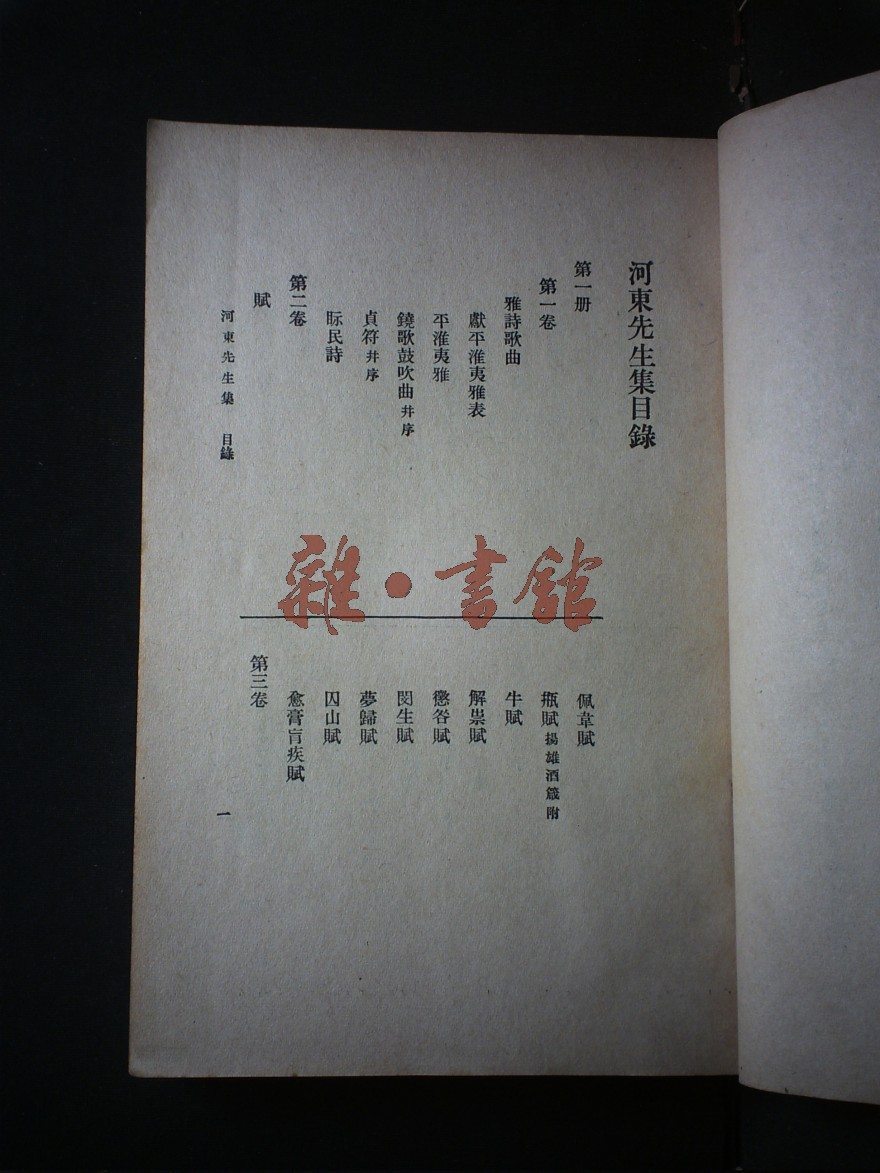 河東先生集目錄
第一册
第一卷
雅詩歌曲
獻平淮夷雅表
平淮夷雅
鐃歌鼓吹曲 并序
貞符 并序
眎民詩
第二卷
賦
佩韋賦
瓶賦 揚雄酒箴附
牛賦
解祟賦
懲咎賦
閔生賦
夢歸賦
囚山賦
愈膏肓疾賦
第三卷
河東先生集 目錄
一
雜·書館